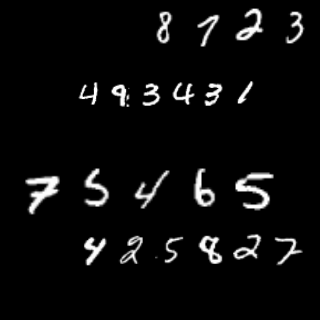 8723
493431
75465
425827